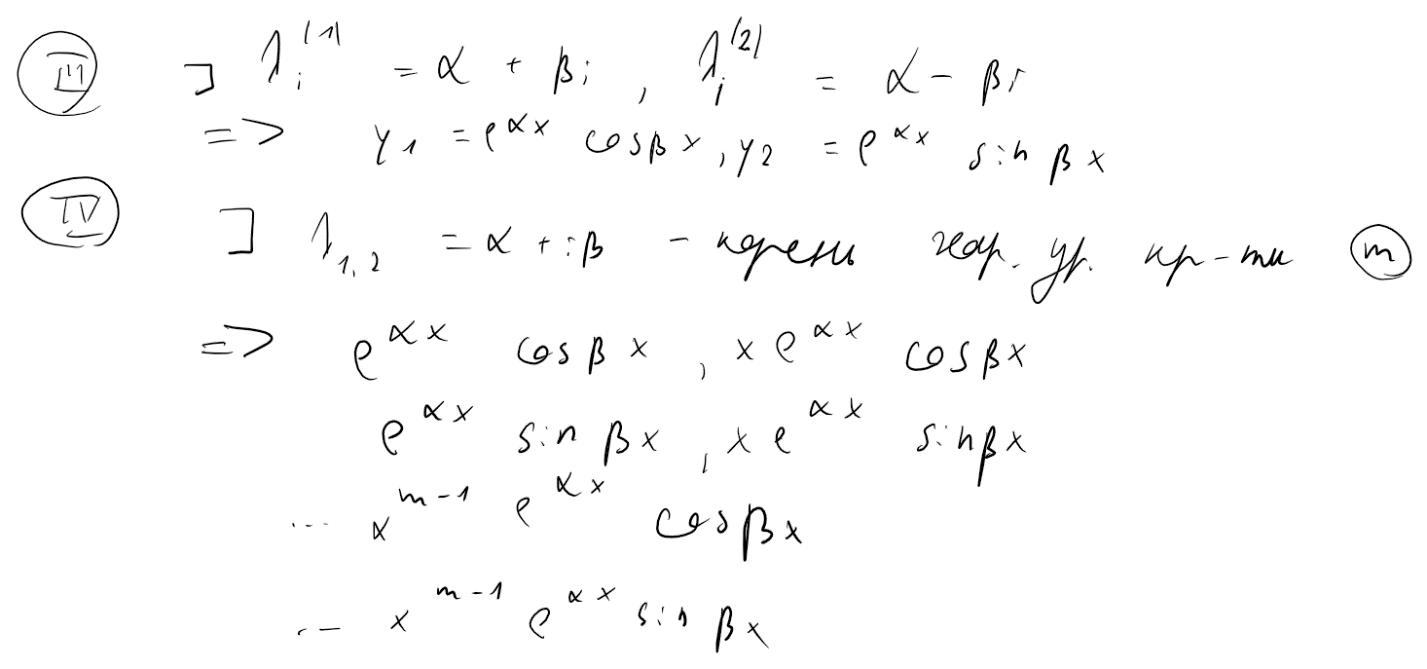 III ] λᵢ⁽¹⁾ = α + βi, λᵢ⁽²⁾ = α − βi
=> y₁ = e^{αx} cosβx, y₂ = e^{αx} sin βx
IV ] λ₁,₂ = α + iβ - корень хар. ур. кр-ти m
=> e^{αx} cos βx, x e^{αx} cosβx
e^{αx} sin βx, x e^{αx} sinβx
... x^{m-1} e^{αx} cosβx
... x^{m-1} e^{αx} sin βx